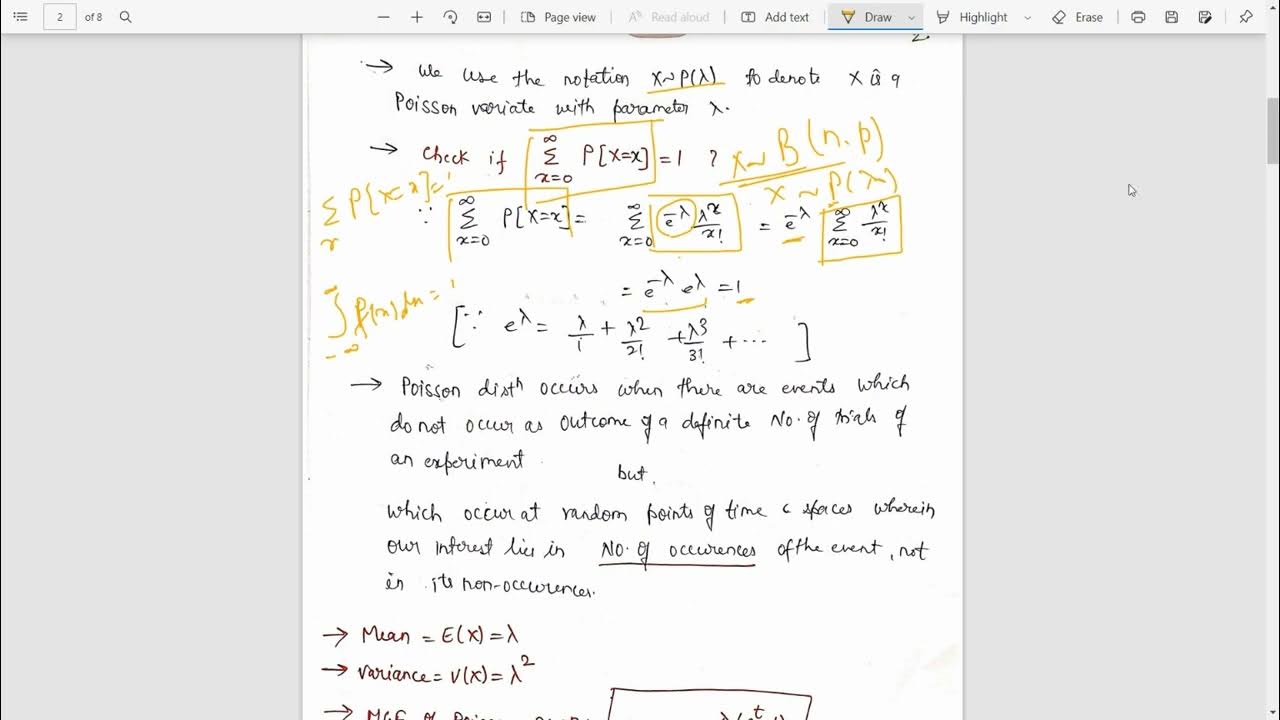 2 of 8 Page view Read aloud Add text Draw Highlight Erase
→ We use the notation X~P(λ) to denote X is a
Poisson variate with parameter λ.
→ Check if ∞∑x=0 P[X=x] = 1 ? X~B(n,p)
X ~ P(λ)
∑x P[X=x]=1
∵ ∞∑x=0 P[X=x] = ∞∑x=0 e^-λ λ^x/x! = e^-λ ∞∑x=0 λ^x/x!
= e^-λ e^λ = 1
∞∫-∞ f(x)dx = 1
[∵ e^λ = λ/1 + λ^2/2! + λ^3/3! + ... ]
→ Poisson distⁿ occurs when there are events which
do not occur as outcome of a definite No. of trials of
an experiment
but,
which occur at random points of time & spaces wherein
our interest lies in No. of occurences of the event, not
in its non-occurences.
→ Mean = E(X) = λ
→ variance = V(X) = λ^2
→ MGF of